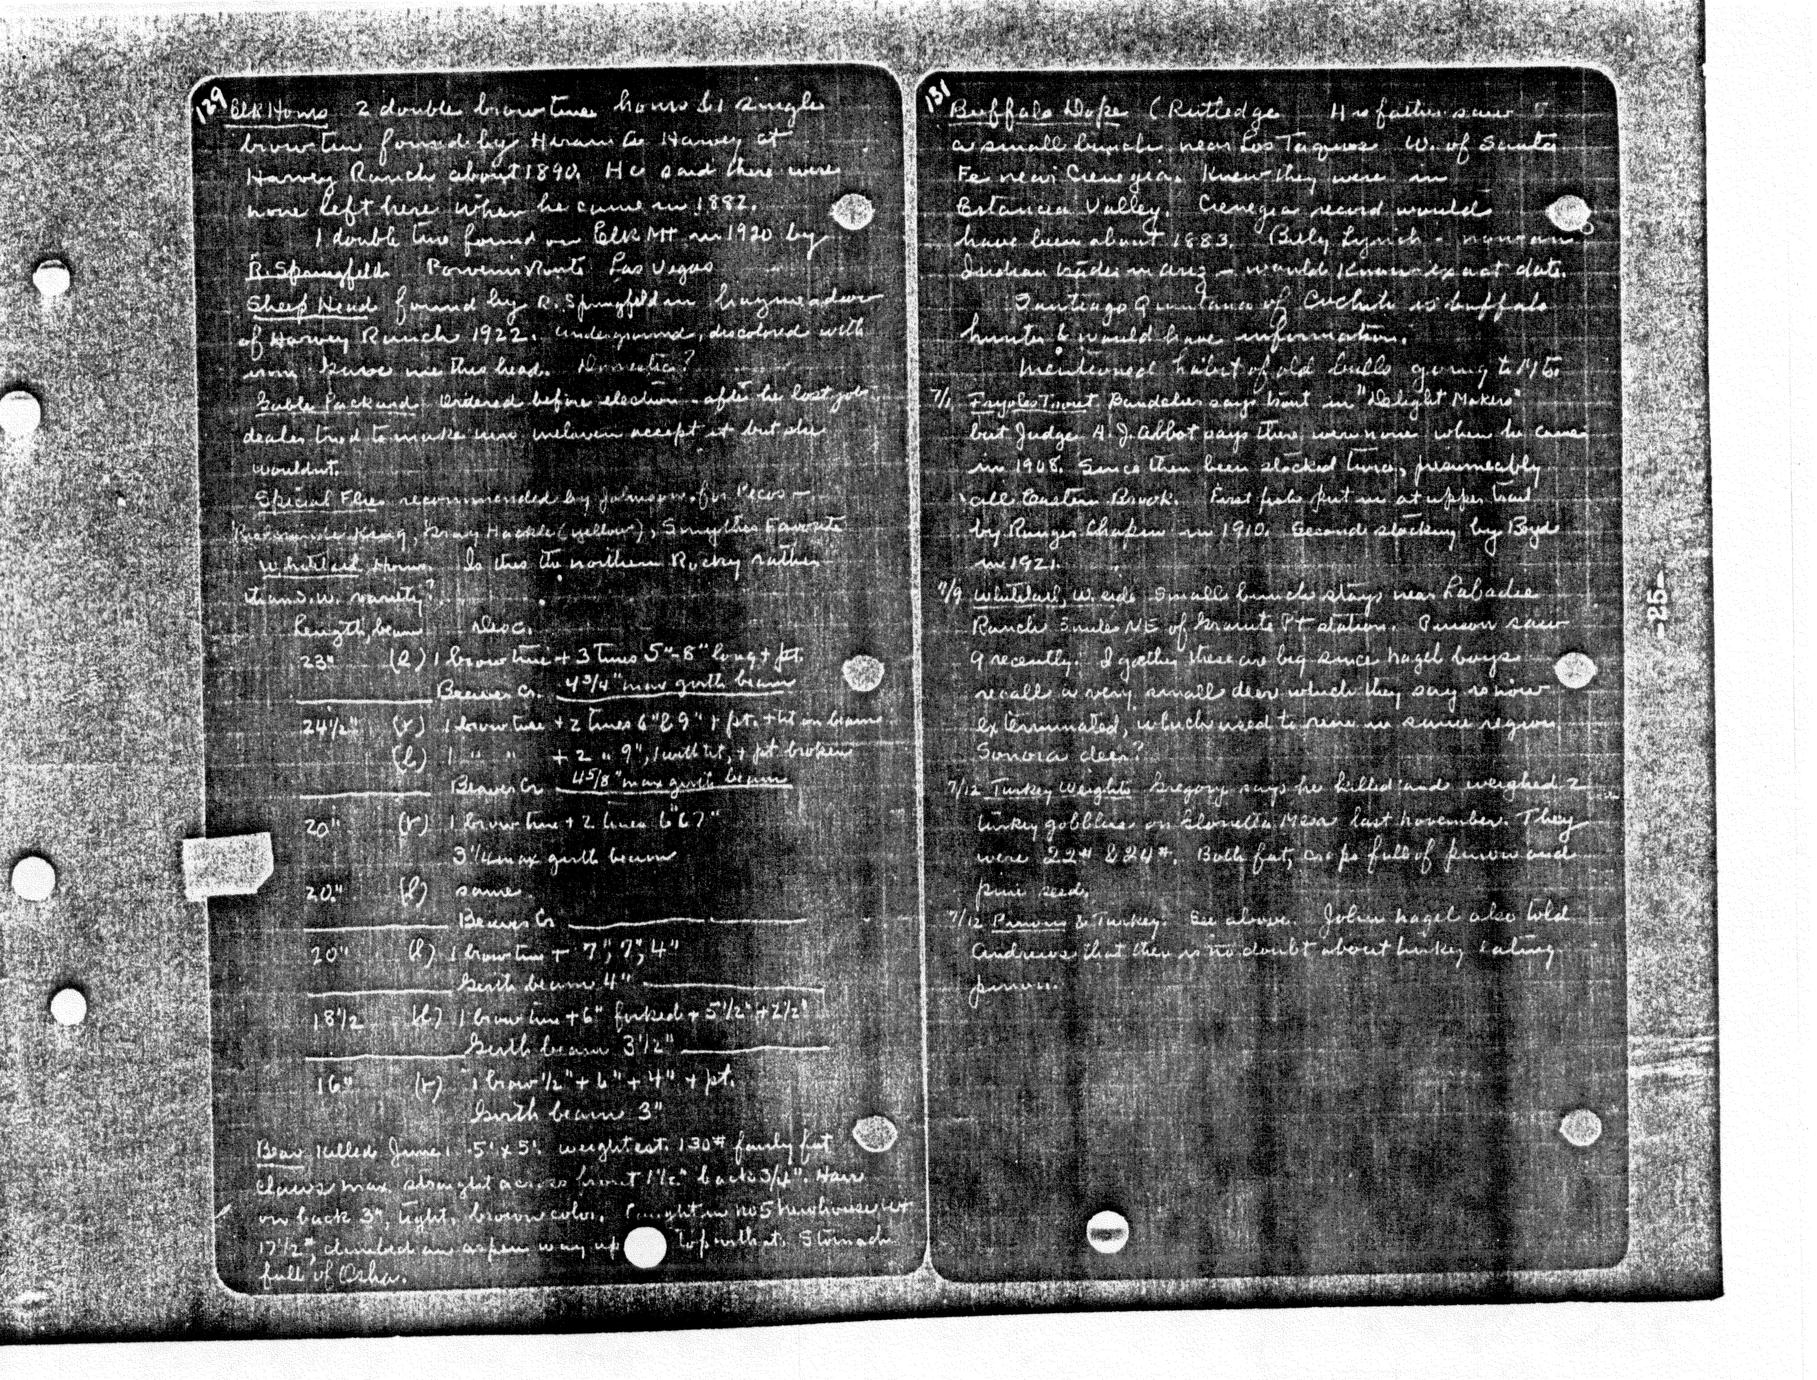 129
Elk Horns 2 double brow tine horns & 1 single
brow tine found by Hiram G. Harvey at
Harvey Ranch about 1890. He said there were
none left here when he came in 1882.
1 double tine found on Elk Mt in 1920 by
R. Springfeld Route Las Vegas
Sheep Head found by R. Springfeld in hay meadow
of Harvey Ranch 1922. underground, discolored with
Gave me this head. Domestic?
Gable Packard Ordered before election - after he lost job
dealer tried to make him accept it but she
wouldnt.
Special Flies recommended by Johnson for Pecos —
King, Gray Hackle (yellow), Smythes Favorite
Whitetail Horns. Is this the northern Rocky rather
than s.w. variety?
Length, beam Desc.
23" (l) 1 brow tine + 3 tines 5"-8" long + pt.
Beaver Cr. 4 3/4" max girth beam
24 1/2" (r) 1 brow tine + 2 tines 6" & 9" + pt. + tit on beam
(l) 1 " " + 2 " 9", 1 with tit, + pt broken
Beaver Cr 4 5/8" max girth beam
20" (r) 1 brow tine + 2 tines 6" & 7"
3 1/4 max girth beam
20" (l) same
Beaver Cr
20" (l) 1 brow tine + 7", 7", 4"
Girth beam 4"
18 1/2 (l) 1 brow tine + 6" forked + 5 1/2" + 2 1/2"
Girth beam 3 1/2"
16" (r) 1 brow 1/2" + 6" + 4" + pt.
Girth beam 3"
Bear killed June 1 5' x 5'. weight est. 130# fairly fat
Claws max. straight across front 1 1/2" back 3/4". Hair
on back 3", light brown color. Caught in no 5 Newhouse wt
17 1/2#, climbed an aspen way up top with it. Stomach
full of Osha.
131
Buffalo Dope (Rutledge His father saw
a small bunch near Los Taques W. of Santa
Fe near Cienegia. Knew they were in
Estancia Valley. Cienegia record would
have been about 1883. Billy Lynch - now an
Indian trader in Ariz - would know exact date.
Santiago Quintana of Cochiti is buffalo
hunter & would have information.
Mentioned habit of old bulls going to Mts.
7/1 Frijoles Trout Bandelier says trout in "Delight Makers"
but Judge A. J. Abbot says there were none when he came
in 1908. Since then been stocked twice, presumeably
all Eastern Brook. First fish put in at upper trail
by Ranger Chapin in 1910. Second stocking by Boyd
in 1921.
7/9 Whitetail, W. side Small bunch stays near Labadie
Ranch 3 miles NE of Granite Pt station. Pinson saw
9 recently. I gather these are big since Nagel boys
recall a very small deer which they say is now
exterminated, which used to run in same region
Sonora deer?
7/12 Turkey Weights Gregory says he killed and weighed 2
turkey gobblers on Glorieta Mesa last November. They
were 22# & 24#. Both fat, crops full of pinon and
pine seed.
7/12 Pinons & Turkey. See above. John Nagel also told
Andrews that there is no doubt about turkey eating
pinon.
-25-